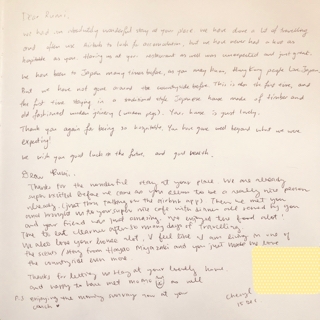 Dear Rumi,
We had an absolutely wonderful stay at your place. We have done a lot of travelling
and often use Airbnb to look for accommodation, but we have never had a host as
hospitable as you. Having us at your restaurant as well was unexpected and just great.
We have been to Japan many times before, as you may know, Hong Kong people love Japan,
But we have not gone around the countryside before. This is also the first case, and
the first time staying in a traditional style Japanese home made of timber and
old fashioned window glazing (window paper). Your home is just lovely.
Thank you again for being so hospitable. You have gone well beyond what we were
expecting!
We wish you good luck in the future, and good
Dear Rumi,
Thanks for the wonderful stay at your place. We are already
before we came as you seem to be a really nice person
already. (Just from talking on the airbnb app) Then we met you
and brought us to your super cafe with dinner served by you
and your friend was just amazing. We enjoyed the food a lot!
The to eat after so many days of travelling.
We also love your house a lot. I feel like I am living in one of
the scenes / story from Hayao Miyazaki and you just made me love
the countryside even more.
Thanks for letting us stay at your lovely home
and happy to have met as well
P.S enjoying the morning sunray now at your
couch ♡
Cheryl
15.